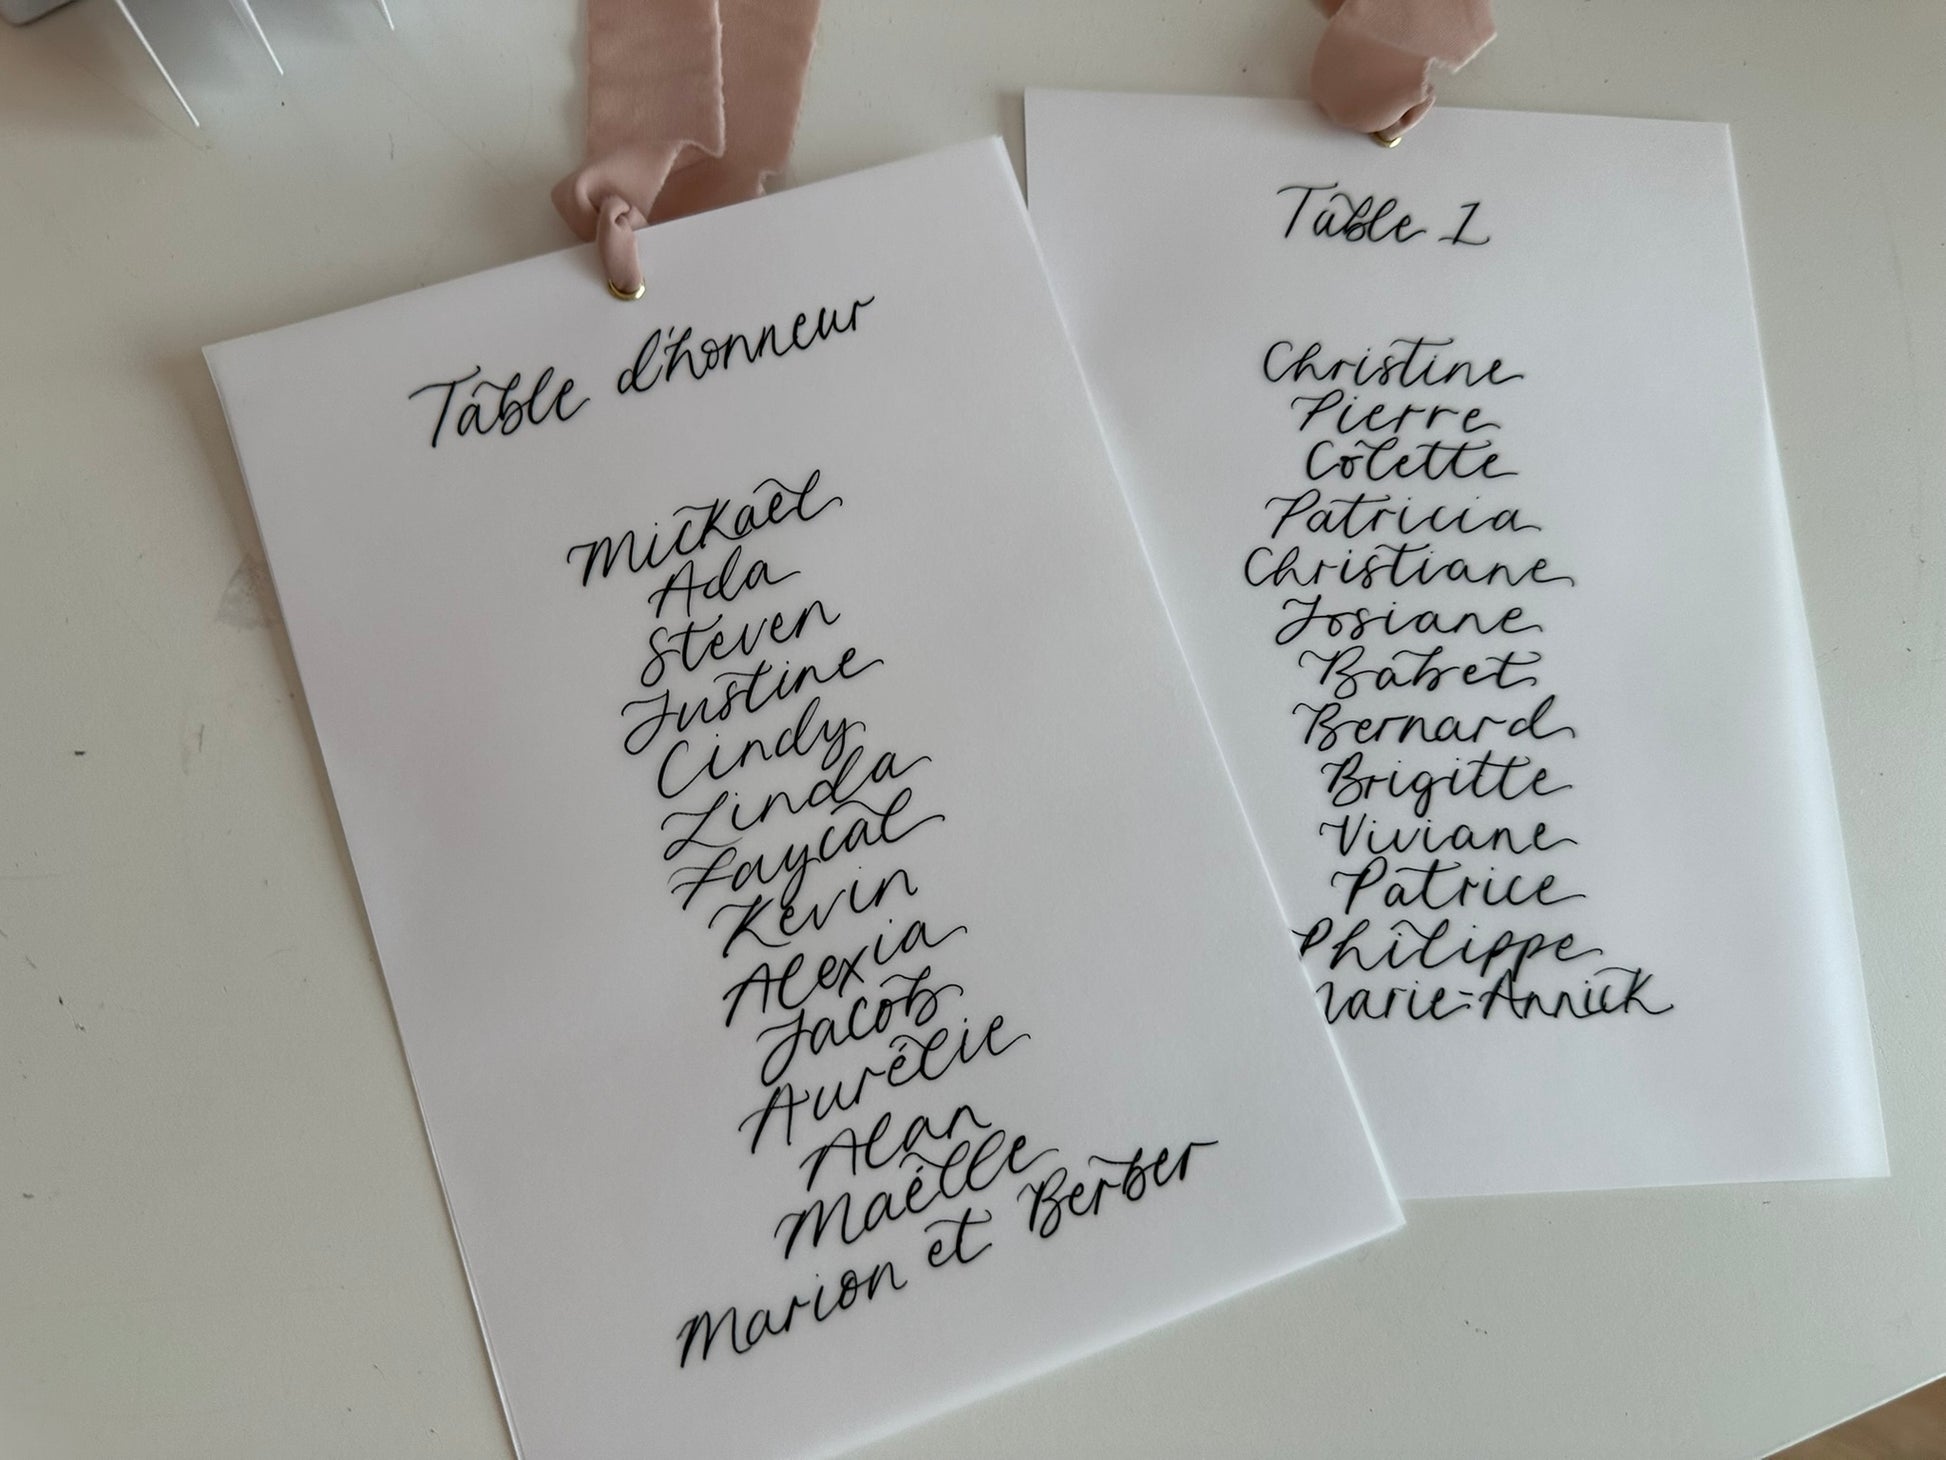 Table d'honneur
Mickaël
Ada
Steven
Justine
Cindy
Linda
Fayçal
Kevin
Alexia
Jacob
Aurélie
Alan
Maëlle
Marion et Berber
Table 1
Christine
Pierre
Colette
Patricia
Christiane
Josiane
Babet
Bernard
Brigitte
Viviane
Patrice
Philippe
Marie-Annick